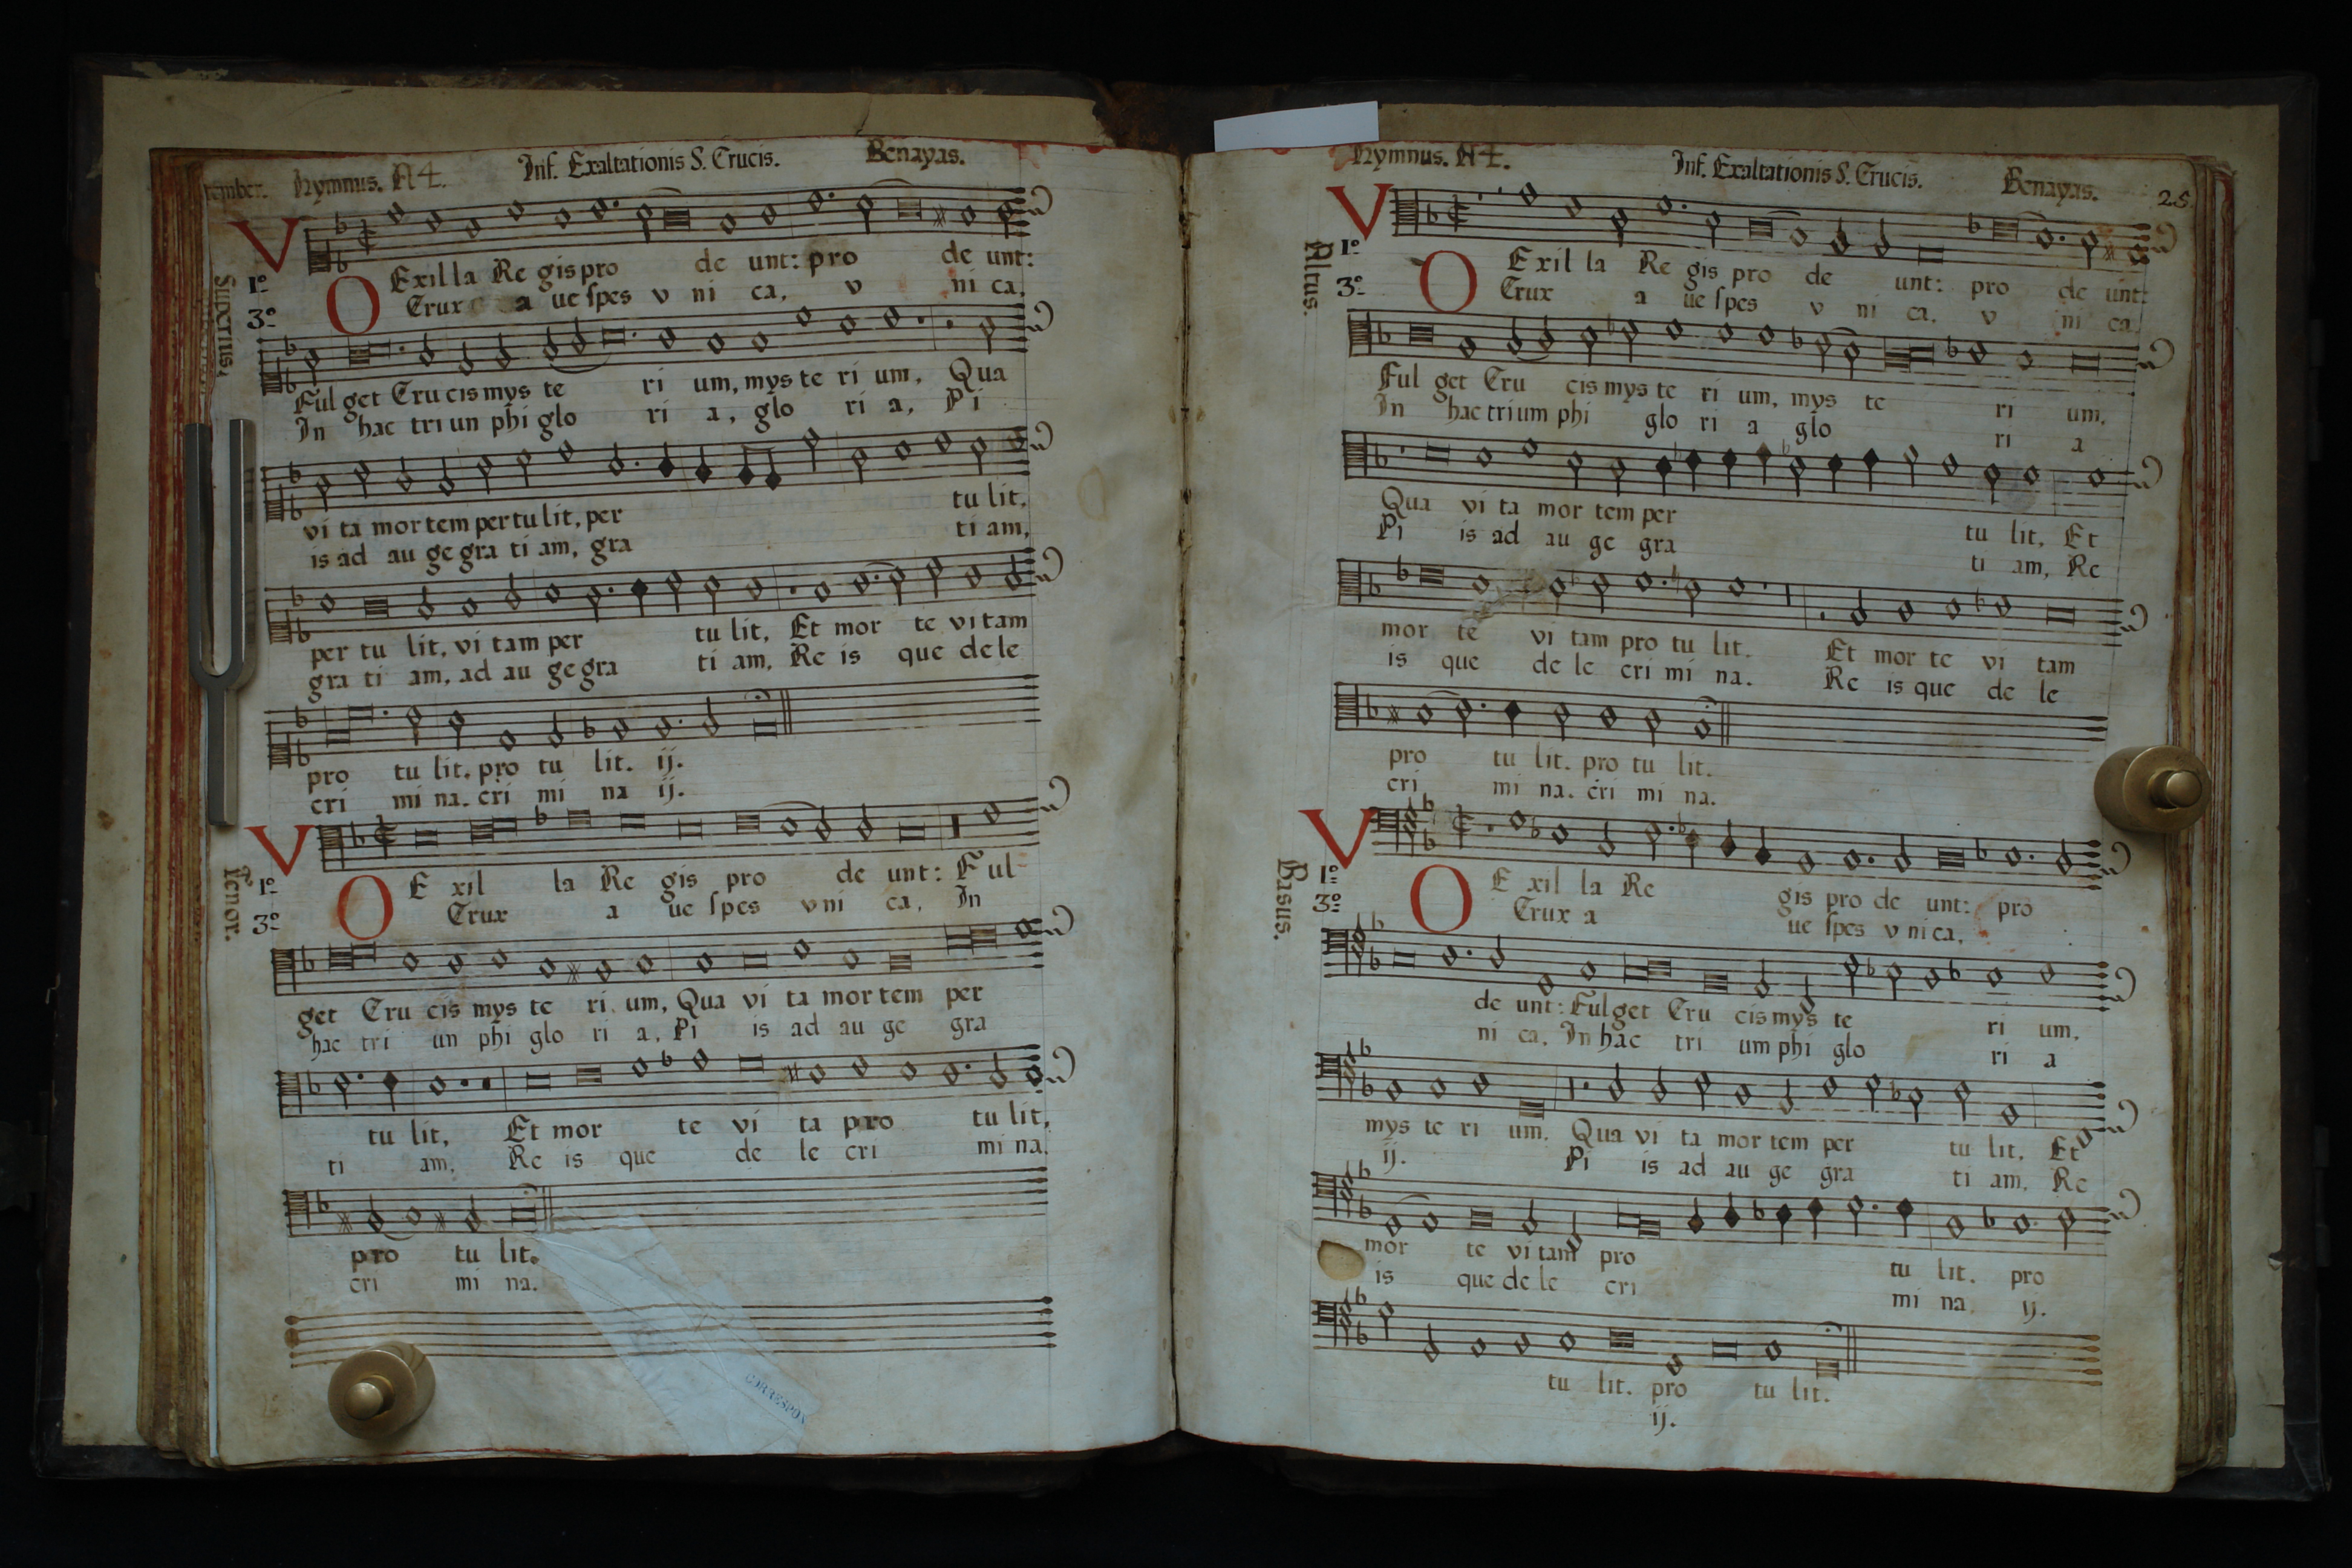 tember. Hymnus. A 4. Inf. Exaltationis S. Crucis. Benayas.
Superius.
V Exil la Re gis pro de unt: pro de unt:
1º
3º O Crux a ue spes v ni ca, v ni ca,
Ful get Cru cis mys te ri um, mys te ri um, Qua
In hac tri un phi glo ri a, glo ri a, Pi
vi ta mor tem per tu lit, per tu lit,
is ad au ge gra ti am, gra ti am,
per tu lit, vi tam per tu lit, Et mor te vi tam
gra ti am, ad au ge gra ti am, Re is que de le
pro tu lit. pro tu lit. ij.
cri mi na. cri mi na ij.
Tenor.
V E xil la Re gis pro de unt: Ful
1º
3º O Crux a ue spes v ni ca, In
get Cru cis mys te ri um, Qua vi ta mor tem per
hac tri un phi glo ri a, Pi is ad au ge gra
tu lit, Et mor te vi ta pro tu lit,
ti am, Re is que de le cri mi na,
pro tu lit.
cri mi na.
CORRESPON
Hymnus. A 4. Inf. Exaltationis S. Crucis. Benayas. 28
Altus.
V E xil la Re gis pro de unt: pro de unt:
1º
3º O Crux a ue spes v ni ca. v ni ca
Ful get Cru cis mys te ri um, mys te ri um.
In hac tri um phi glo ri a glo ri a
Qua vi ta mor tem per tu lit, Et
Pi is ad au ge gra ti am, Re
mor te vi tam pro tu lit. Et mor te vi tam
is que de le cri mi na. Re is que de le
pro tu lit. pro tu lit.
cri mi na. cri mi na.
Basus.
V E xil la Re gis pro de unt: pro
1º
3º O Crux a ue spes v ni ca,
de unt: Ful get Cru cis mys te ri um,
ni ca, In hac tri um phi glo ri a
mys te ri um. Qua vi ta mor tem per tu lit, Et
ij. Pi is ad au ge gra ti am, Re
mor te vi tam pro tu lit. pro
is que de le cri mi na, ij.
tu lit. pro tu lit.
ij.